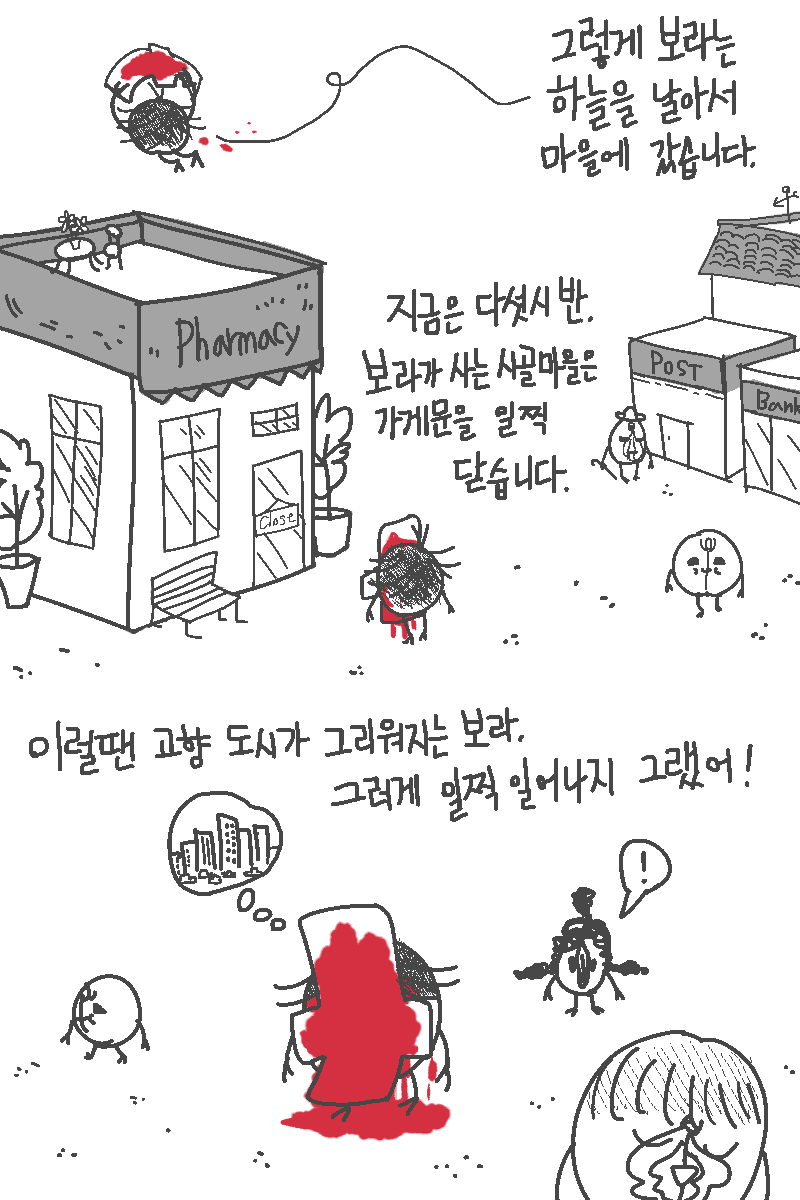 그렇게 보라는
하늘을 날아서
마을에 갔습니다.
Pharmacy
지금은 다섯시 반.
보라가 사는 시골마을은
가게문을 일찍
닫습니다.
POST
Bank
Close
이럴땐 고향 도시가 그리워지는 보라.
그러게 일찍 일어나지 그랬어!
!